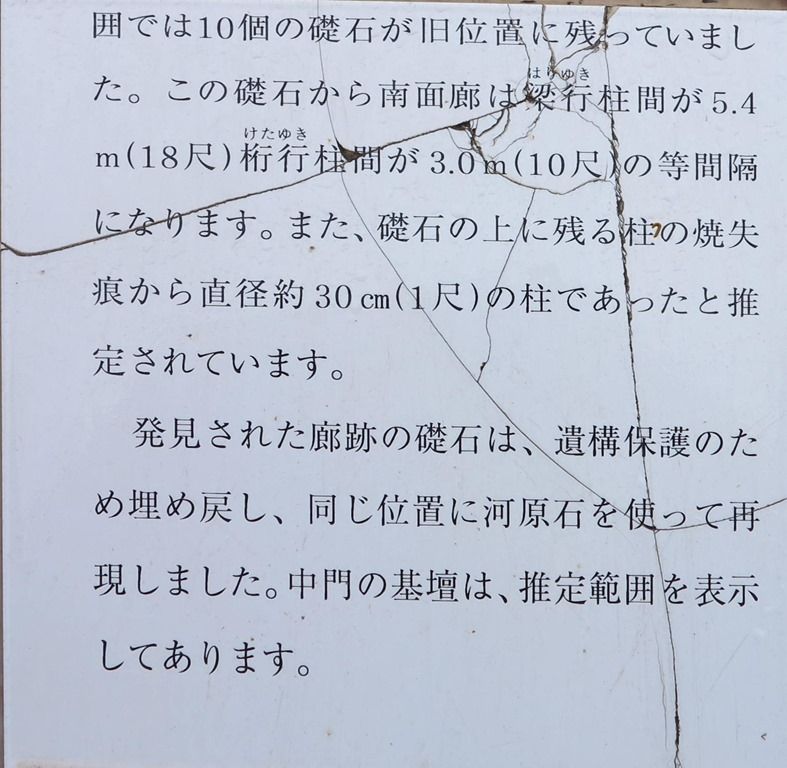 囲では10個の礎石が旧位置に残っていまし
た。この礎石から南面廊は梁行柱間が5.4
はりゆき
m(18尺)桁行柱間が3.0m(10尺)の等間隔
けたゆき
になります。また、礎石の上に残る柱の焼失
痕から直径約30cm(1尺)の柱であったと推
定されています。
発見された廊跡の礎石は、遺構保護のた
め埋め戻し、同じ位置に河原石を使って再
現しました。中門の基壇は、推定範囲を表示
してあります。